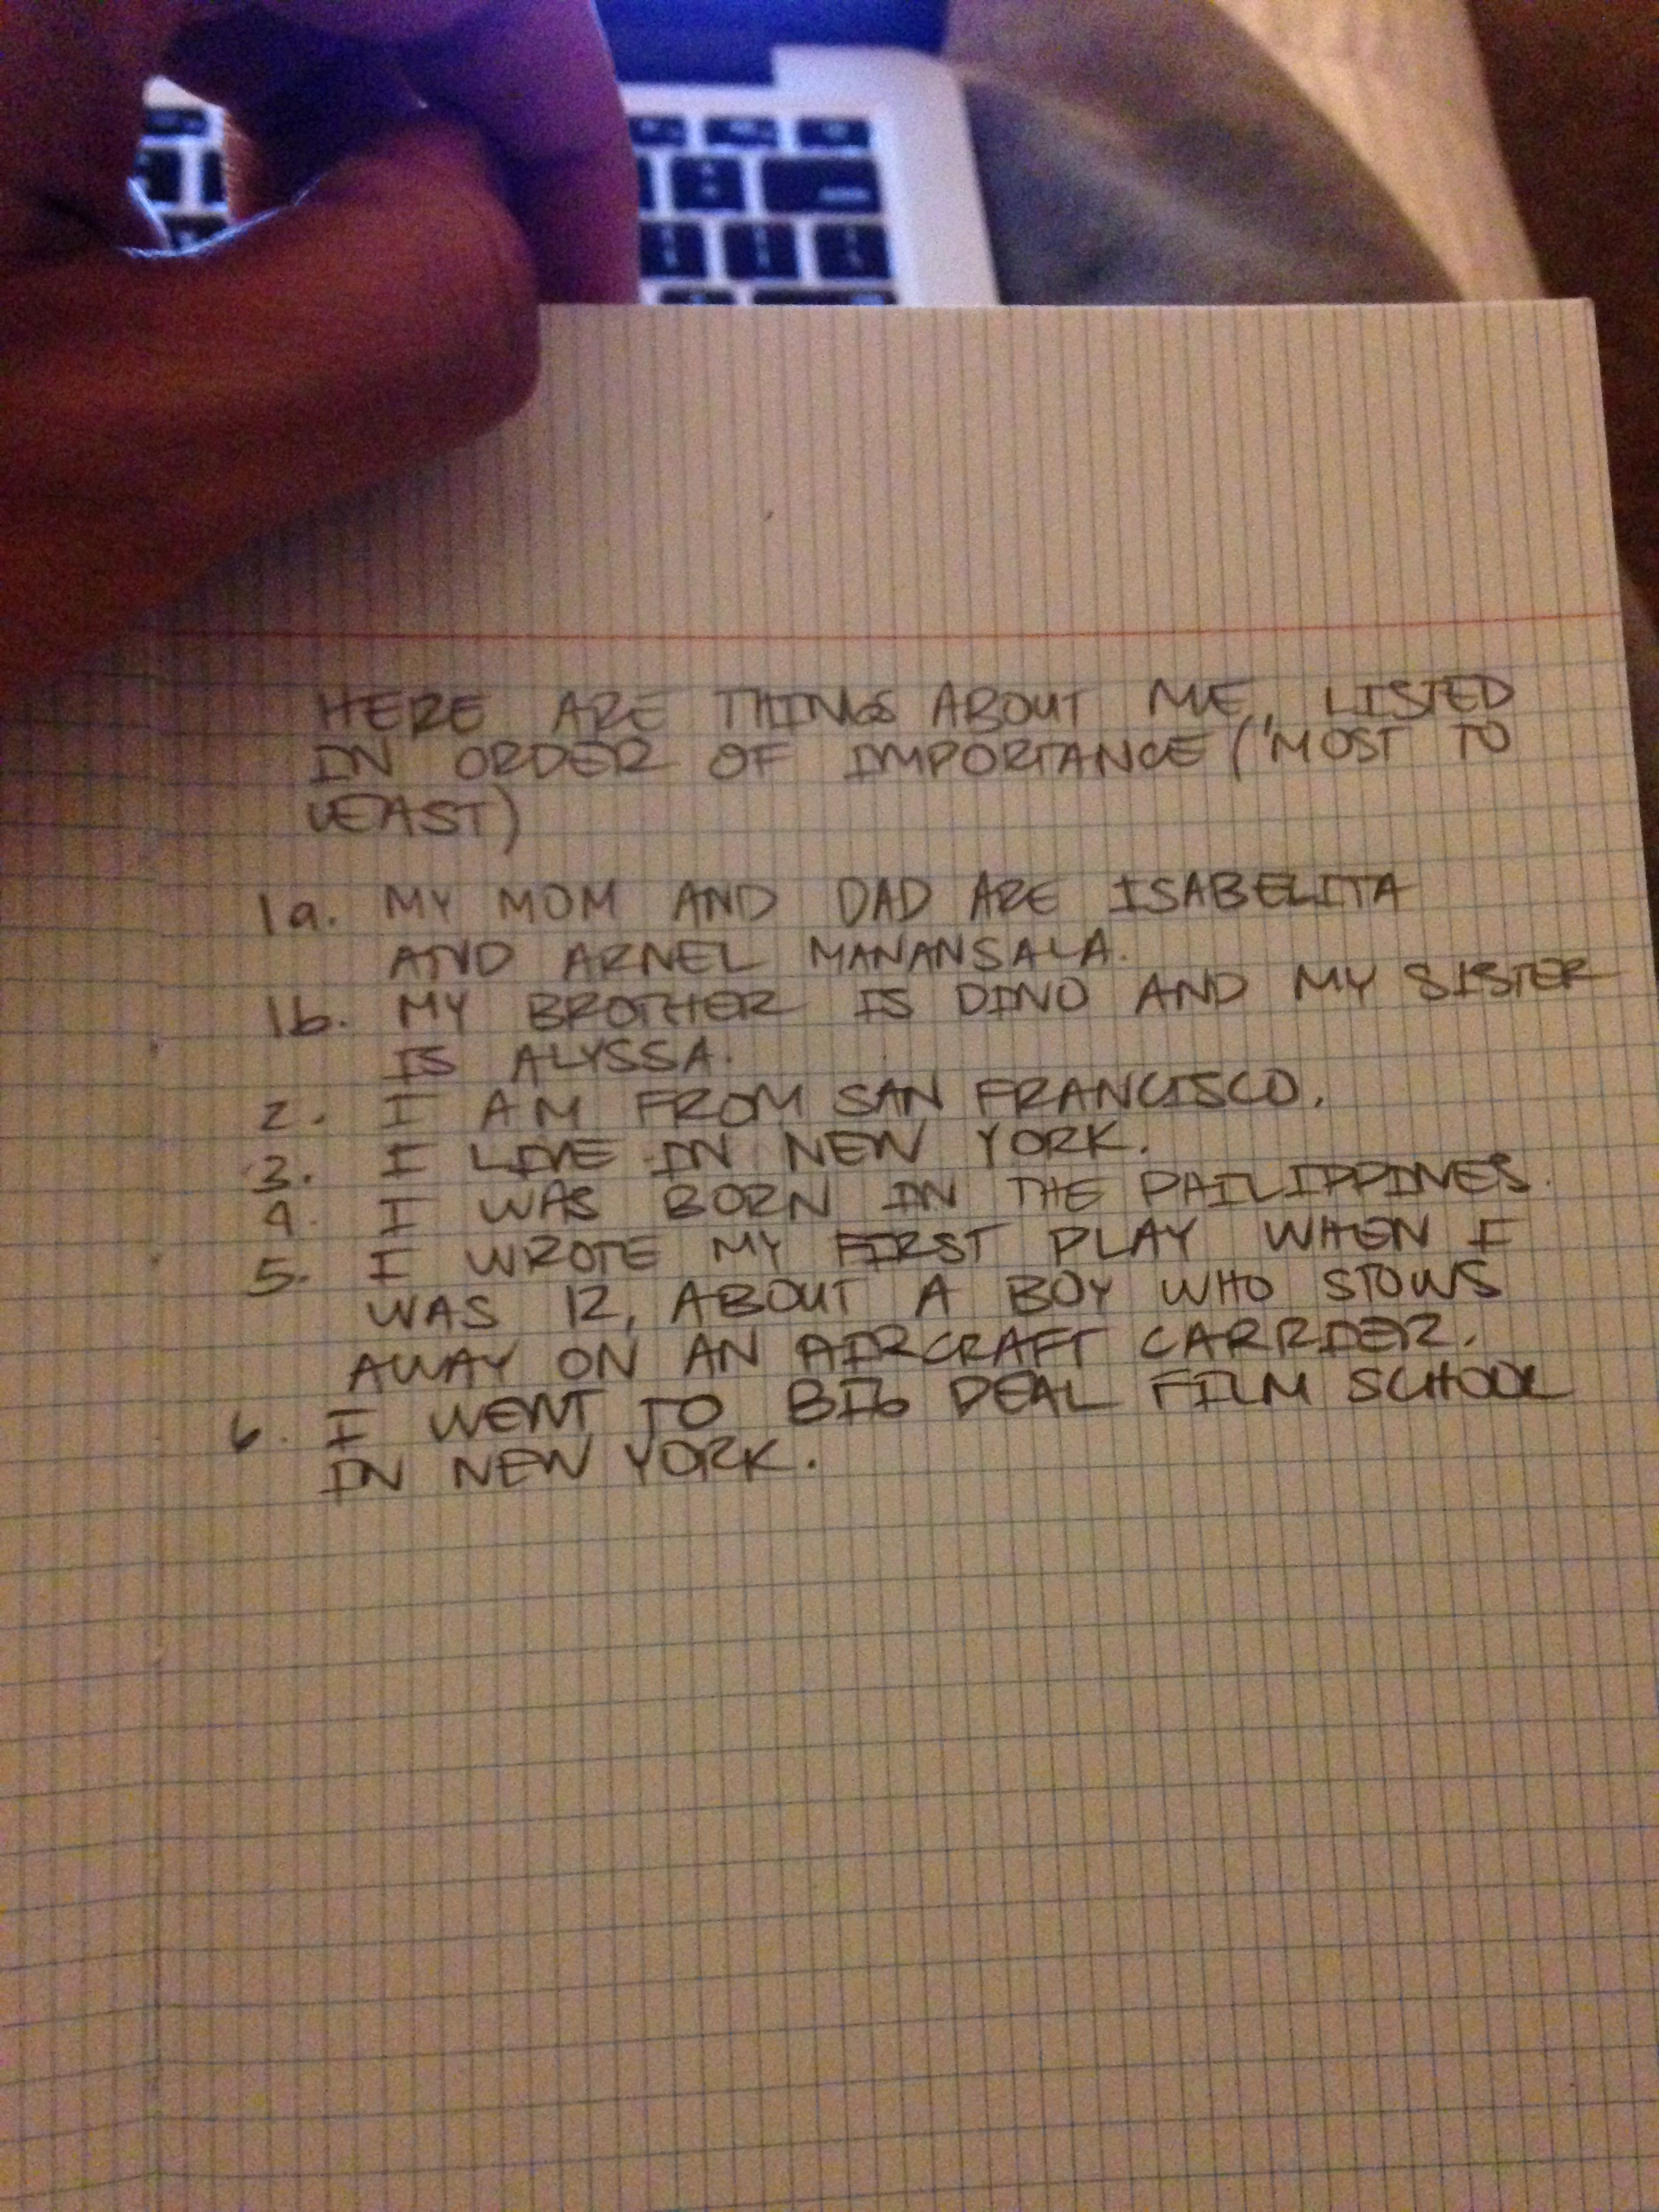 HERE ARE THINGS ABOUT ME, LISTED
IN ORDER OF IMPORTANCE (MOST TO
LEAST)
1a. MY MOM AND DAD ARE ISABELITA
AND ARNEL MANANSALA.
1b. MY BROTHER IS DINO AND MY SISTER
IS ALYSSA.
2. I AM FROM SAN FRANCISCO.
3. I LIVE IN NEW YORK.
4. I WAS BORN IN THE PHILIPPINES.
5. I WROTE MY FIRST PLAY WHEN I
WAS 12, ABOUT A BOY WHO STOWS
AWAY ON AN AIRCRAFT CARRIER.
6. I WENT TO BIG DEAL FILM SCHOOL
IN NEW YORK.